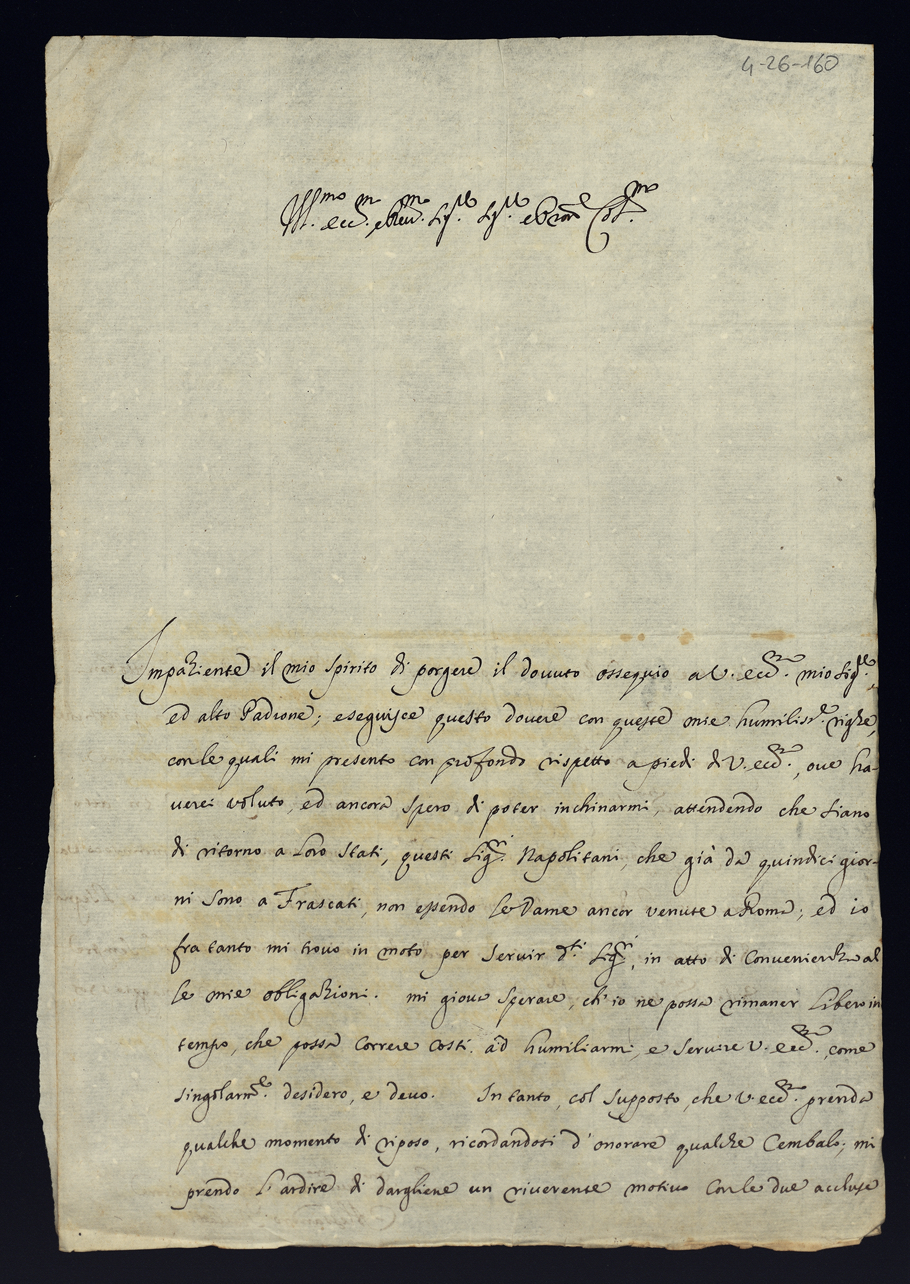 4-26-160
Ill.mo ecc.mo e Rev.mo Sig.re Sig.re e Pron Col.mo
Impaziente il mio spirito di porgere il dovuto ossequio a V. ecc.za mio Sig.re
ed alto Padrone; eseguisce questo dovere con queste mie humiliss.e righe,
con le quali mi presento con profondo rispetto a piedi di V. ecc.za, ove ha-
verei voluto, ed ancora spero di poter inchinarmi, attendendo che siano
di ritorno a Loro Stati, questi Sig.ri Napolitani, che già da quindici gior-
ni sono a Frascati, non essendo le Dame ancor venute a Roma; ed io
fra tanto mi trovo in moto per servir d.ti Sig.ri, in atto di Convenienza al
le mie obligazioni. mi giova sperare, ch'io ne possa rimaner Libero in
tempo, che possa correre costi ad humiliarmi, e servire V. ecc.za, come
singolarm.te desidero, e devo. In tanto, col supposto, che V. ecc.za prenda
qualche momento di riposo, ricordandosi d'onorare qualche Cembalo; mi
prendo l'ardire di dargliene un riverente motivo con le due accluse